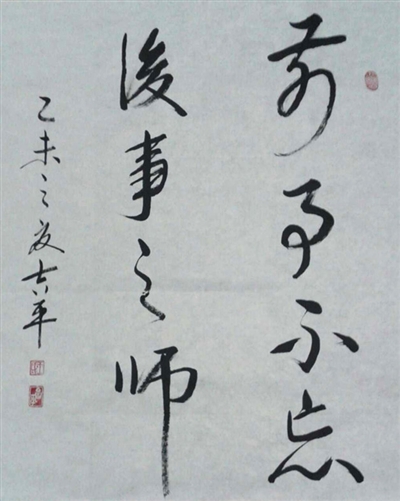 前事不忘
後事之师
乙未之夏吉军